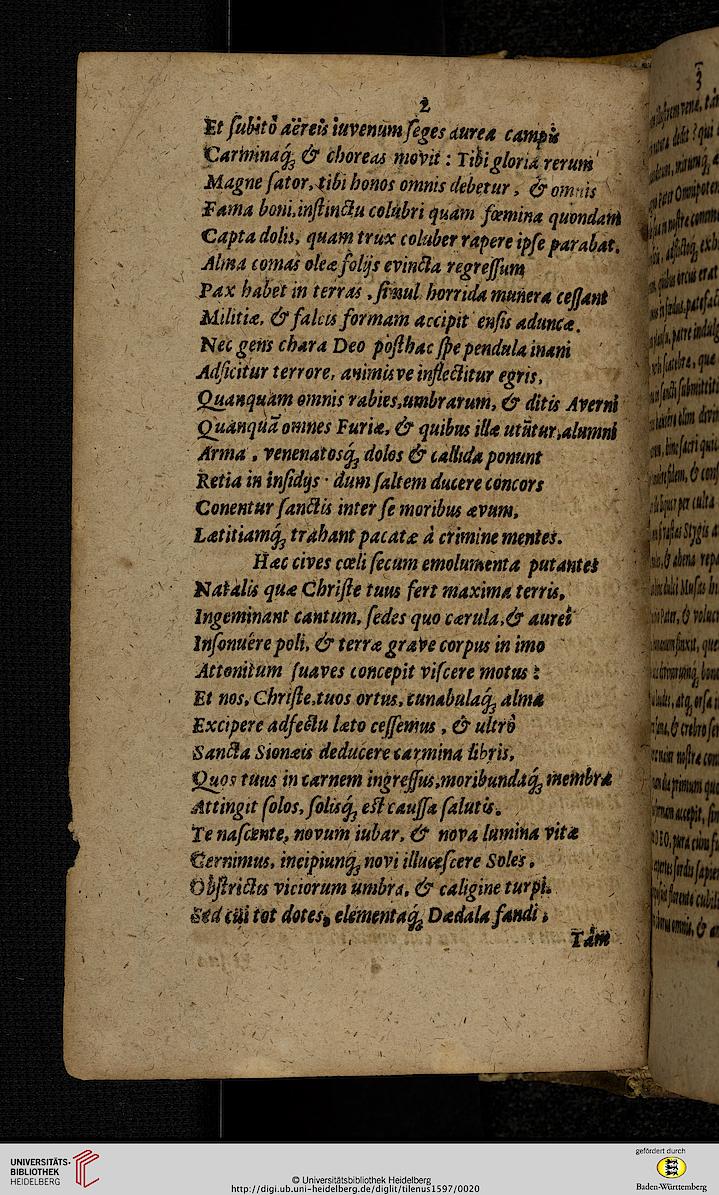 2
Et ſubitò aëreis iuvenum ſeges aurea campis
Carminaq́ꝫ & choreas movit : Tibi gloria rerum
Magne ſator, tibi honos omnis debetur, & omnis
Fama boni, inſtinctu colubri quam fœmina quondam
Capta dolis, quam trux coluber rapere ipſe parabat.
Alma comas oleæ folijs evincta regreſſum
Pax habet in terras, ſimul horrida munera ceſſant
Militiæ, & falcis formam accipit enſis aduncæ.
Nec gens chara Deo poſthac ſpe pendula inani
Adſicitur terrore, animisve inflectitur egris,
Quanquam omnis rabies, umbrarum, & ditis Averni
Quanquā omnes Furiæ, & quibus illæ utūtur, alumni
Arma, venenatosq́ꝫ dolos & callida ponunt
Retia in inſidijs · dum ſaltem ducere concors
Conentur ſanctis inter ſe moribus ævum,
Lætitiamq́ꝫ trahant pacatæ à crimine mentes.
Hæc cives cœli ſecum emolumenta putantes
Natalis quæ Chriſte tuus fert maxima terris,
Ingeminant cantum, ſedes quo cærula, & aurei
Inſonuére poli, & terræ grave corpus in imo
Attonitum ſuaves concepit viſcere motus :
Et nos, Chriſte, tuos ortus, cunabulaq́ꝫ alma
Excipere adfectu læto ceſſemus, & ultrò
Sancta Sionæis deducere carmina libris,
Quos tuus in carnem ingreſſus, moribundaq́ꝫ membra
Attingit ſolos, ſolisq́ꝫ eſt cauſſa ſalutis.
Te naſcente, novum iubar, & nova lumina vitæ
Cernimus, incipiunq́ꝫ novi illuceſcere Soles.
Obſtrictis viciorum umbra, & caligine turpi.
Sed cui tot dotes, elementaq́ꝫ Dædala fandi,
Tám
3
UNIVERSITÄTS-
BIBLIOTHEK
HEIDELBERG
© Universitätsbibliothek Heidelberg
http://digi.ub.uni-heidelberg.de/diglit/tilenus1597/0020
gefördert durch
Baden-Württemberg